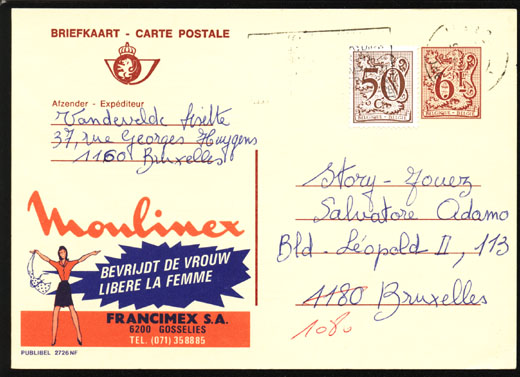 BRIEFKAART - CARTE POSTALE
Afzender - Expéditeur
Vandevelde Lisette
37, rue Georges Huygens
1160 Bruxelles
50
C
BELGIQUE - BELGIË
6F
BELGIQUE - BELGIË
Story-Jouez
Salvatore Adamo
Bld. Léopold II, 113
1180 Bruxelles
1080
Moulinex
BEVRIJDT DE VROUW
LIBERE LA FEMME
FRANCIMEX S.A.
6200 GOSSELIES
TEL. (071) 358885
PUBLIBEL 2726 NF